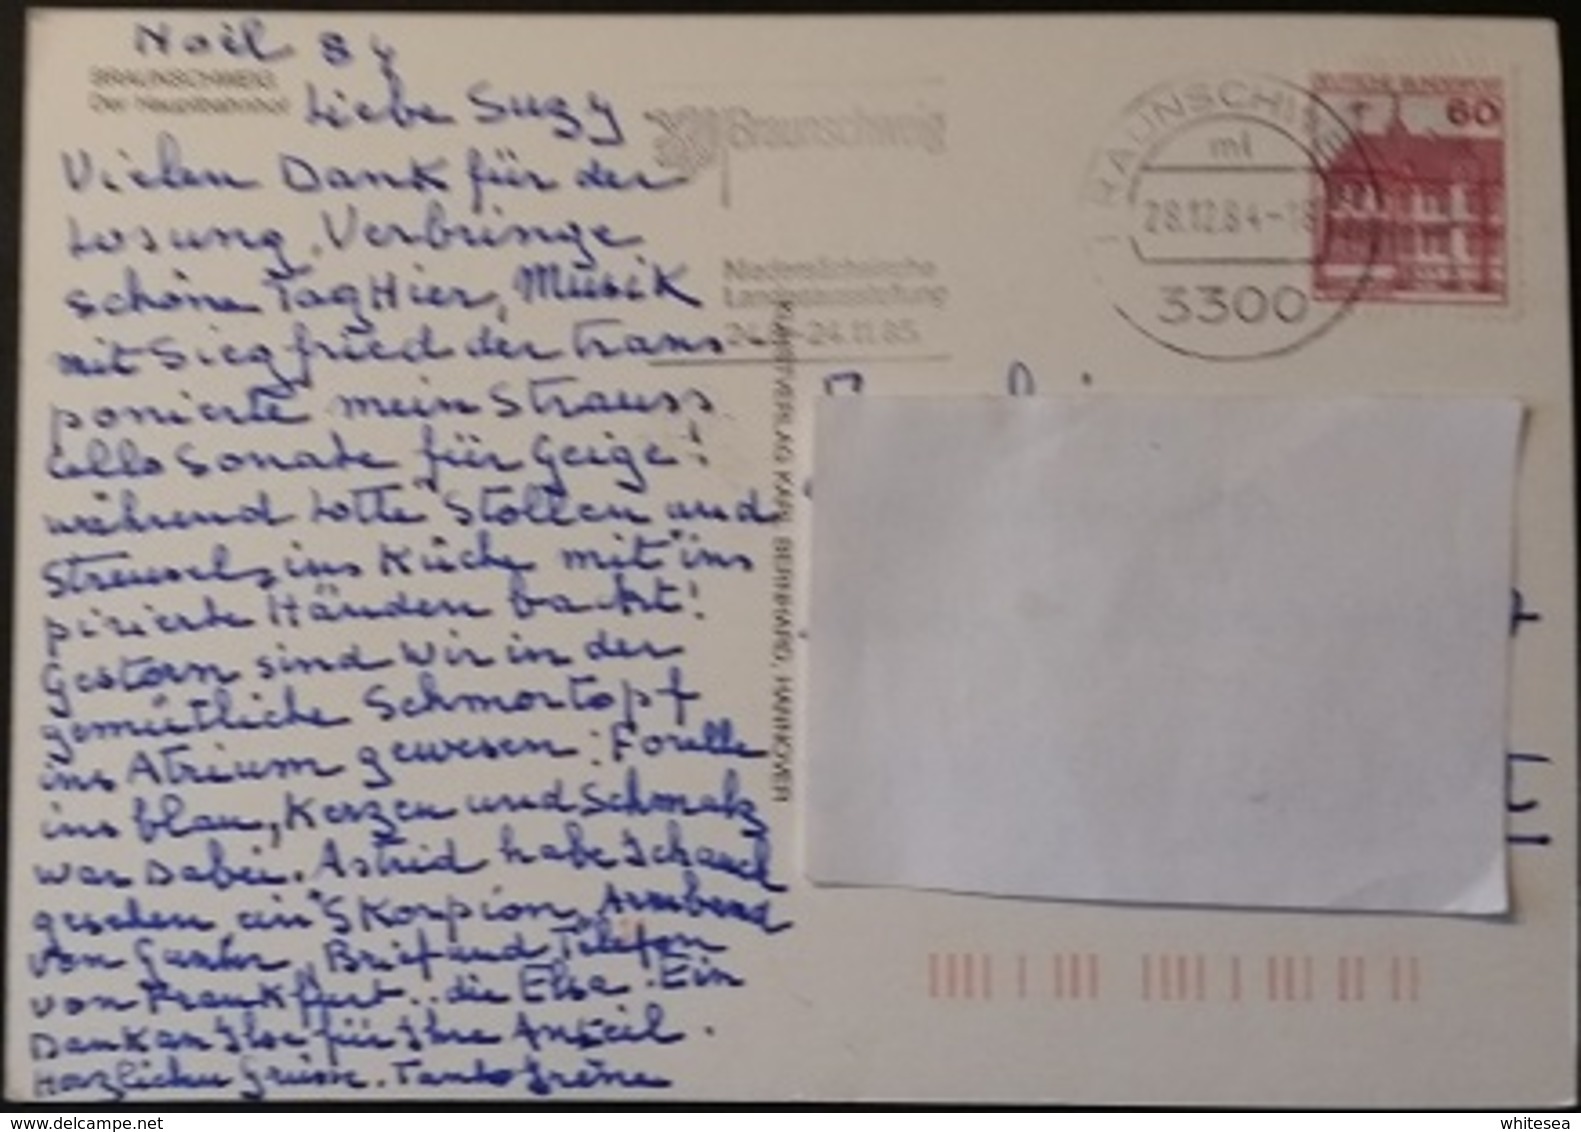 Noël 84
BRAUNSCHWEIG
Der Hauptbahnhof
Liebe Suzy
Vielen Dank für der
Losung. Verbringe
schöne Tag Hier, Musik
mit Siegfried der trans
ponierte mein Strauss
cello Sonate für Geige!
während Lotte Stollen und
Streusel ins Küche mit "ins
pirierte Händen backt!
Gestern sind wir in der
gemütliche Schmortopf
ins Atrium gewesen: Forelle
ins blau, Kerzen und Schmalz
war dabei. Astrid habe Ich auch
gesehen, ein "Skorpion, Armband
von Gunter, Brief und Telefon
von Frankfurt.. die Elsa. Ein
Dank an Ilse für Ihre Anteil.
Herzlichen Grüsse. Tante Irène
Braunschweig
Niedersächsische
Landesausstellung
24.8-24.11.85
BRAUNSCHWEIG
ml
28.12.84-18
3300
DEUTSCHE BUNDESPOST
60
KUNSTVERLAG KARL BERNHARD, HANNOVER
whitesea